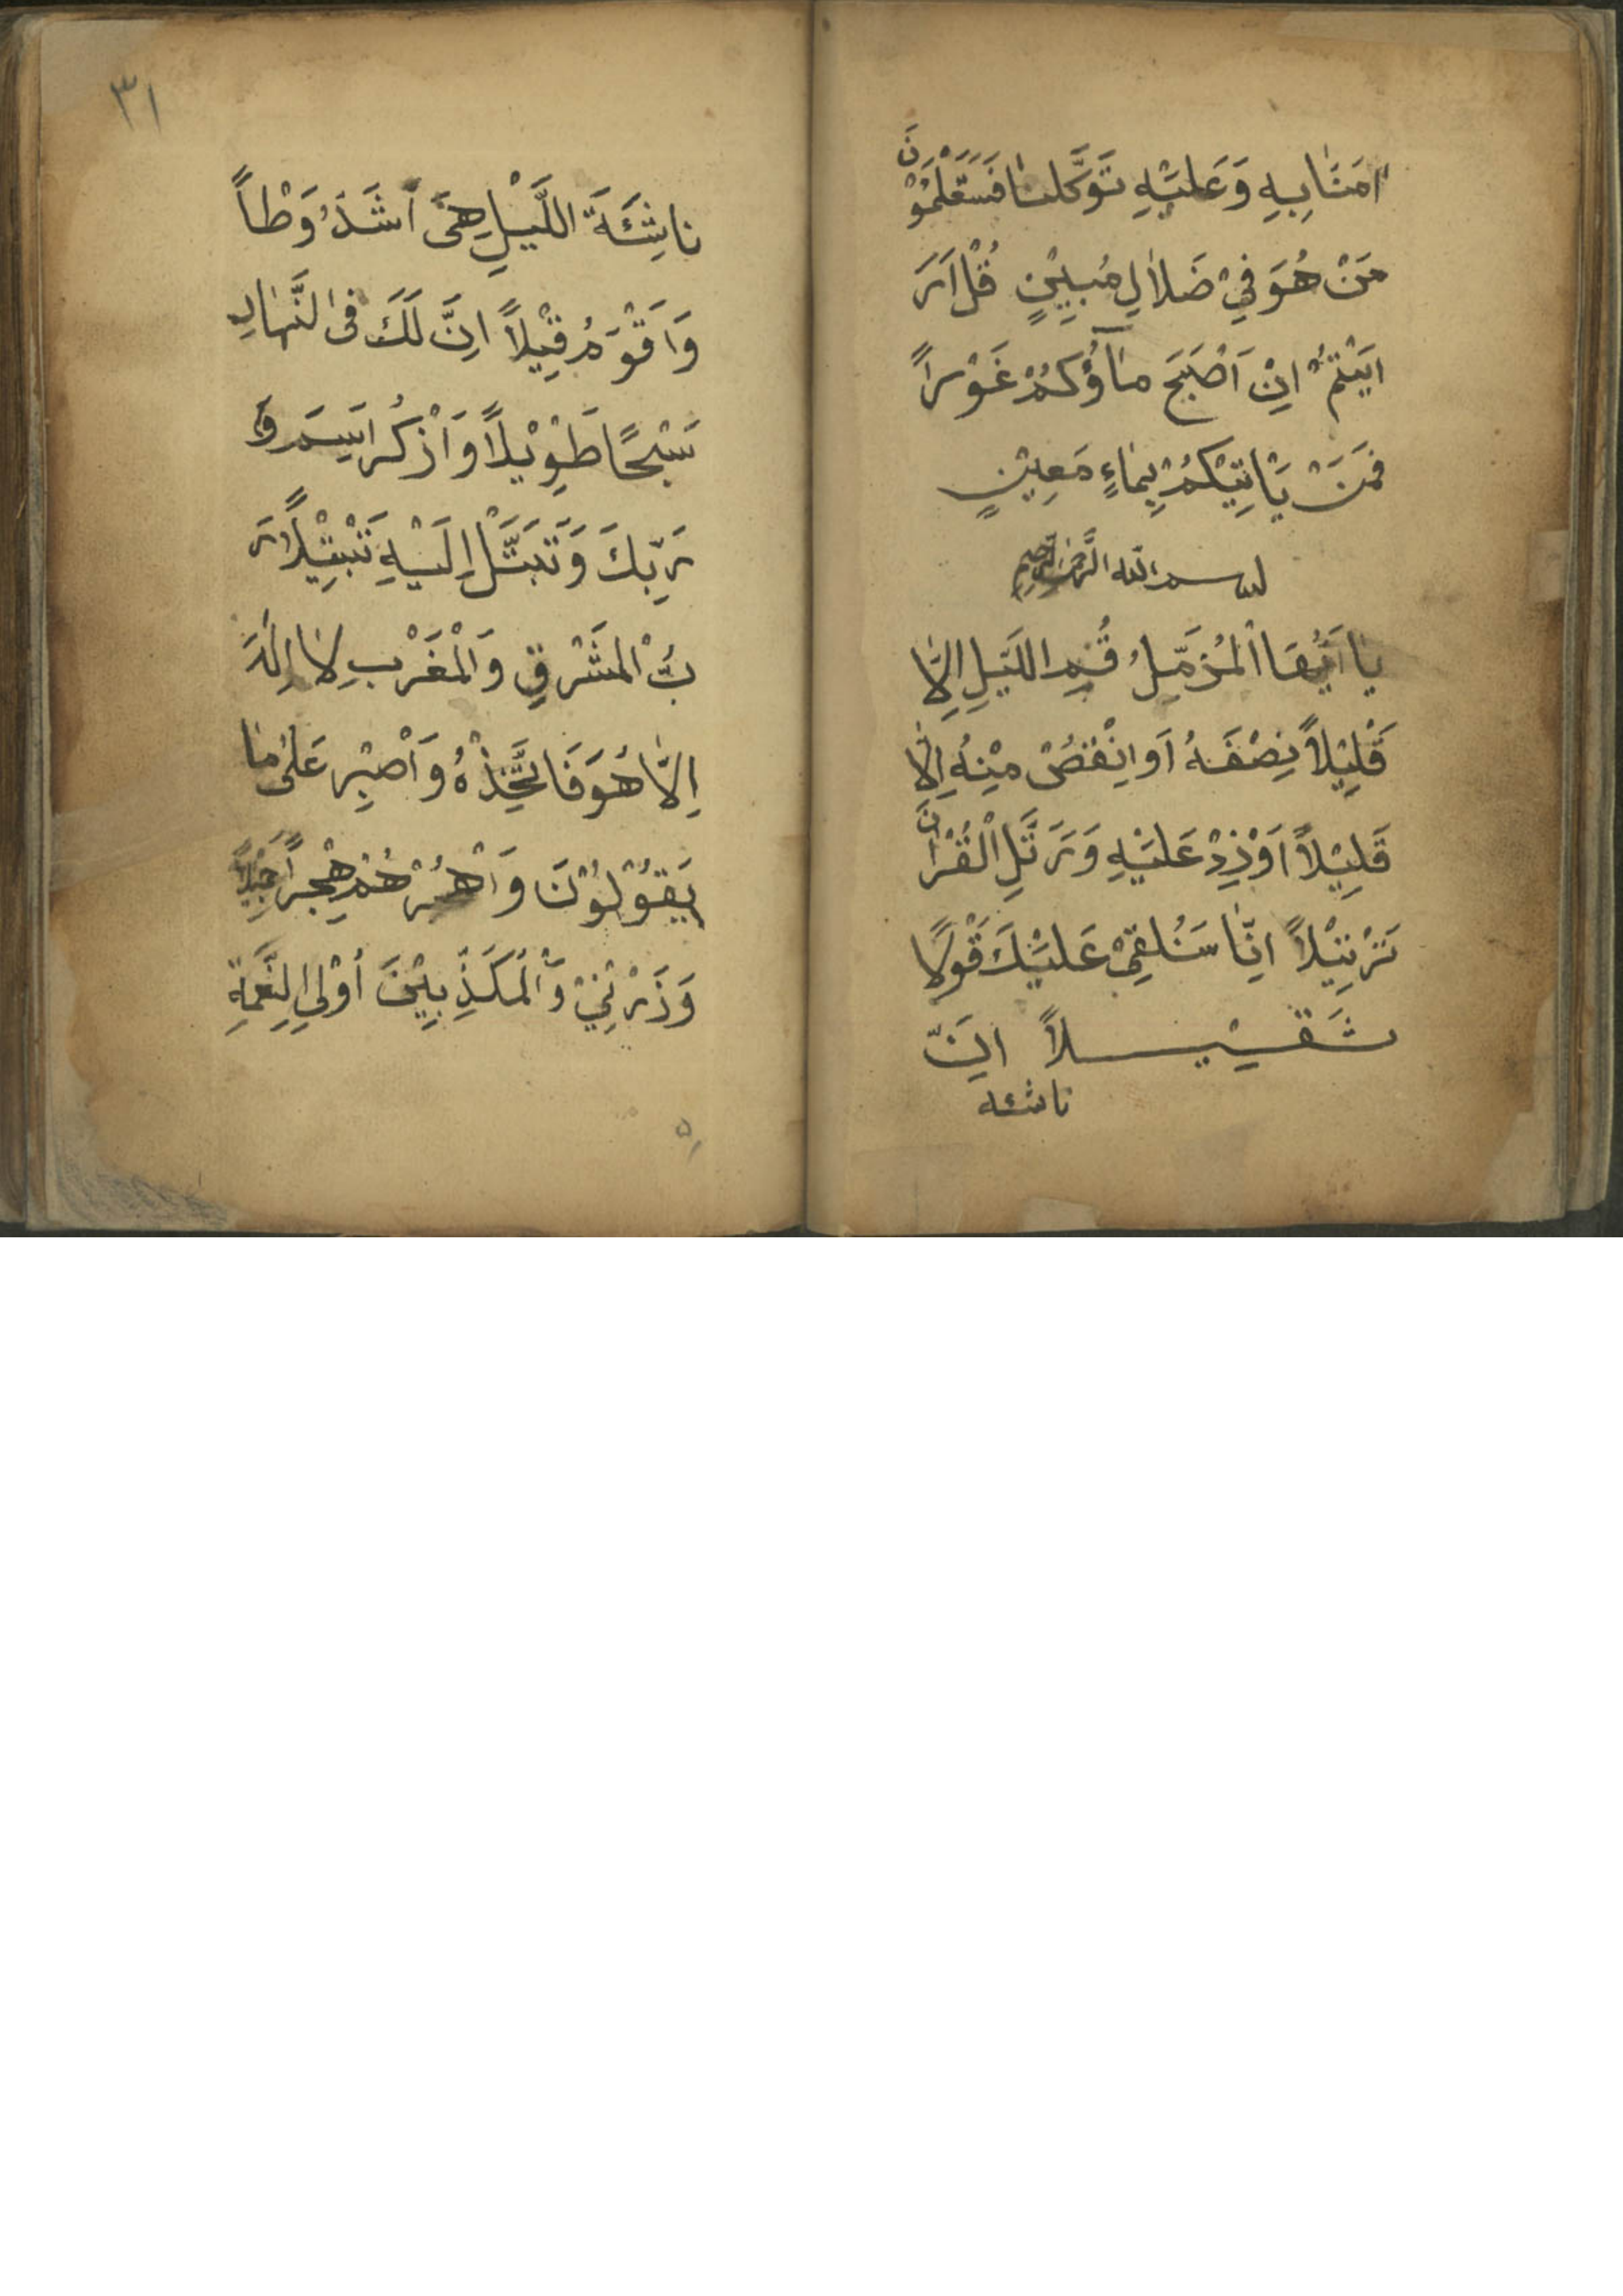 اٰمَنَّا بِهِ وَعَلَيْهِ تَوَكَّلْنٰا فَسَتَعْلَمُوْنَ
مَنْ هُوَ فِيْ ضَلاٰلٍ مُبِيْنٍ قُلْ اَرَ
اَيْتُمْ اِنْ اَصْبَحَ مٰاۤؤُكُمْ غَوْراً
فَمَنْ يَاْتِيْكُمْ بِمٰاءٍ مَعِيْنٍ
بسم الله الرَّحمن الرَّحيم
يٰا اَيُّهَا الْمُزَّمِّلُ قُمِ اللَّيْلَ اِلاّٰ
قَلِيْلاً نِصْفَهُ اَوِ انْقُصْ مِنْهُ اِلاّٰ
قَلِيْلاً اَوْ زِدْ عَلَيْهِ وَرَتِّلِ الْقُرْاٰنَ
تَرْتِيْلاً اِنّٰا سَنُلْقِيْ عَلَيْكَ قَوْلًا
ثَقِيْلاً اِنَّ
ناشئه
٣١
نٰاشِئَةَ اللَّيْلِ هِيَ اَشَدُّ وَطْاً
وَاَقْوَمُ قِيْلاً اِنَّ لَكَ فِى النَّهٰارِ
سَبْحًا طَوِيْلاً وَاذْكُرِ اسْمَ
رَبِّكَ وَتَبَتَّلْ اِلَيْهِ تَبْتِيْلاً رَ
بُّ الْمَشْرِقِ وَالْمَغْرِبِ لاٰ اِلٰهَ
اِلاّٰ هُوَ فَاتَّخِذْهُ وَاصْبِرْ عَلىٰ مٰا
يَقُوْلُوْنَ وَاهْجُرْهُمْ هَجْراً جَمِيْلاً
وَذَرْنِيْ وَالْمُكَذِّبِيْنَ اُوْلِى النَّعْمَةِ